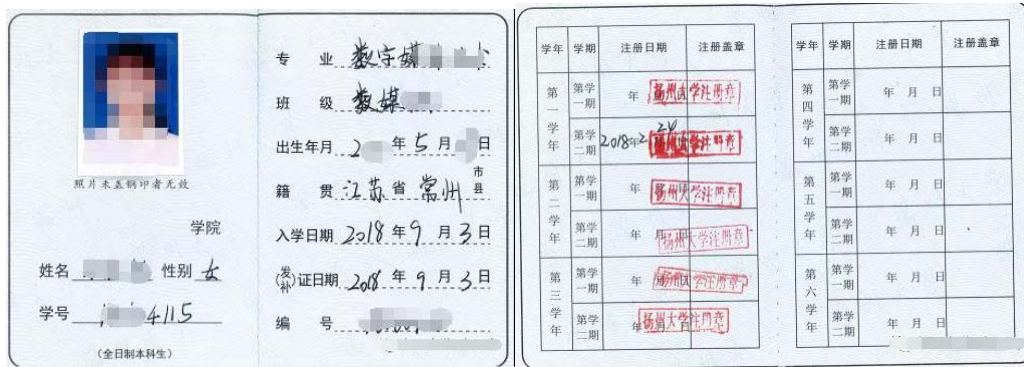 照片未盖钢印者无效
学院
姓名 性别 女
学号 4115
(全日制本科生)
专 业 数字媒
班 级 数媒
出生年月 2 年 5 月 日
籍 贯 江苏省 常州 市县
入学日期 2018 年 9 月 3 日
发(补)证日期 2018 年 9 月 3 日
编 号
学年 学期 注册日期 注册盖章
第一学年 第学一期 年 扬州大学注册章
第学二期 2018年2 24 扬州大学注册章
第二学年 第学一期 年 扬州大学注册章
第学二期 年 月 扬州大学注册章
第三学年 第学一期 年 扬州大学注册章
第学二期 年 扬州大学注册章
学年 学期 注册日期 注册盖章
第四学年 第学一期 年 月 日
第学二期 年 月 日
第五学年 第学一期 年 月 日
第学二期 年 月 日
第六学年 第学一期 年 月 日
第学二期 年 月 日